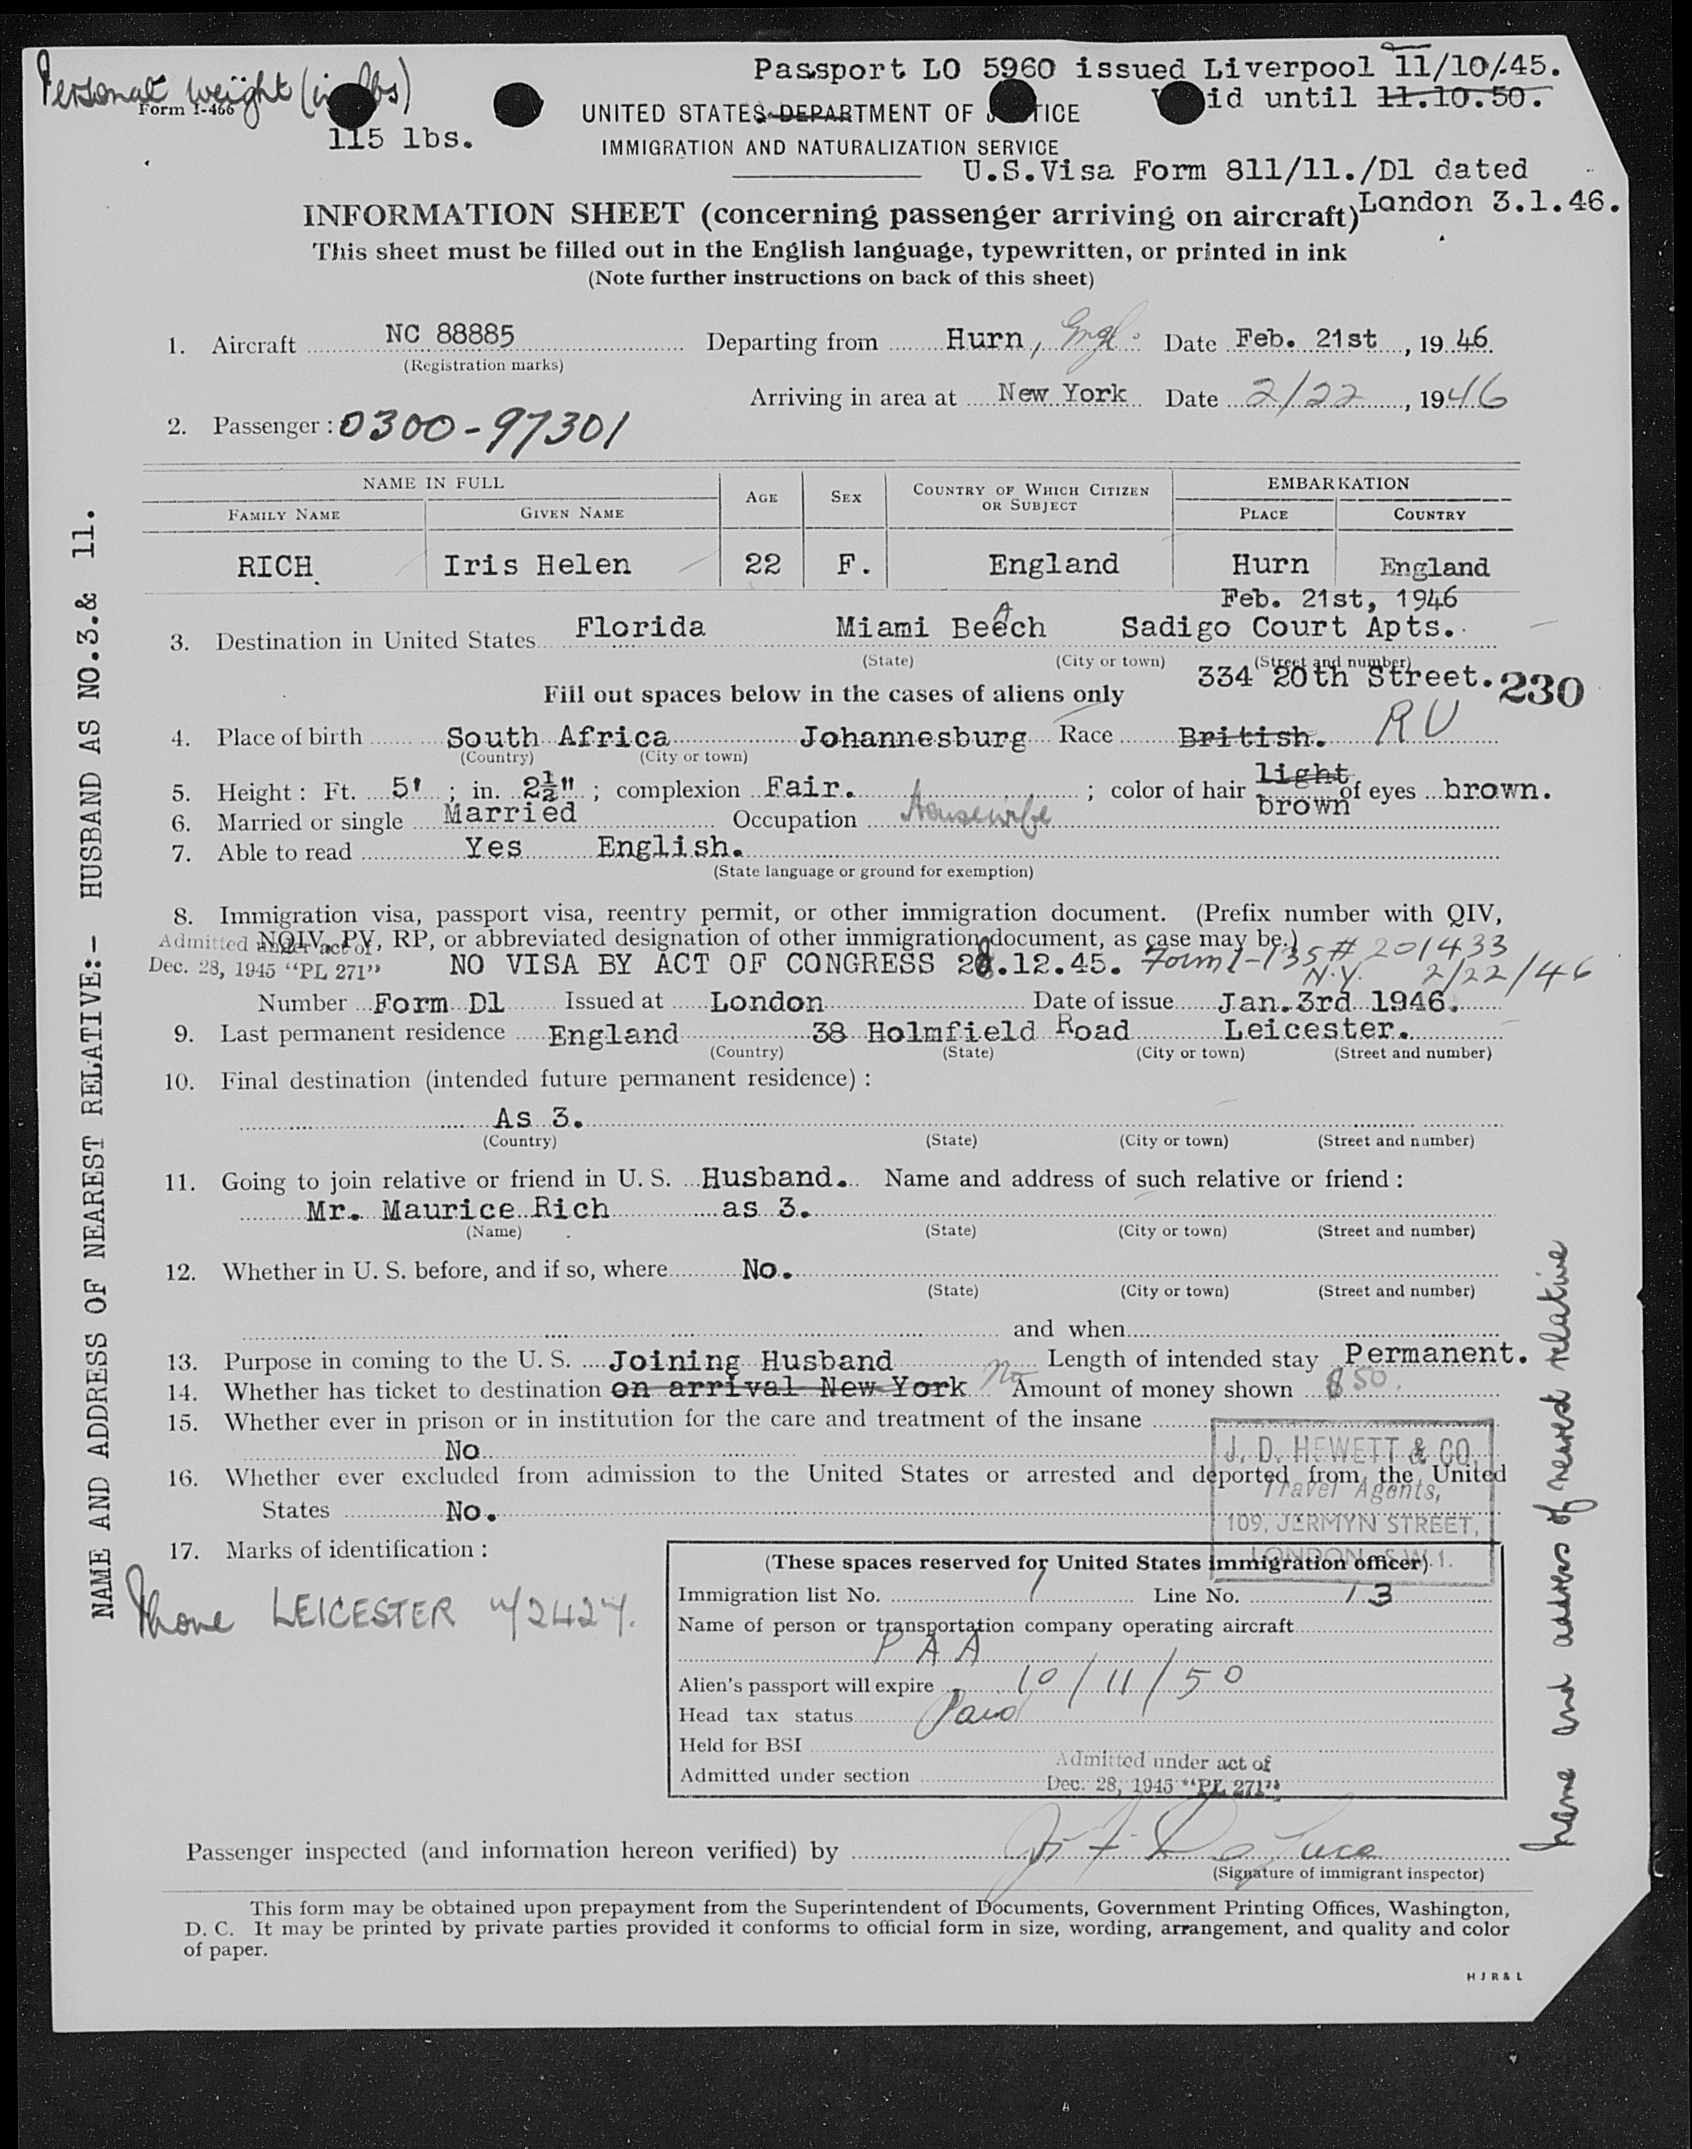 Personal weight (in lbs)
Form I-466
115 lbs.
Passport LO 5960 issued Liverpool 11/10/45.
UNITED STATES DEPARTMENT OF
id until 11.10.50.
IMMIGRATION AND NATURALIZATION SERVICE
U.S.Visa Form 811/11./D1 dated
London 3.1.46.
INFORMATION SHEET (concerning passenger arriving on aircraft)
This sheet must be filled out in the English language, typewritten, or printed in ink
(Note further instructions on back of this sheet)
1. Aircraft NC 88885 Departing from Hurn, Engl. Date Feb. 21st, 1946
(Registration marks)
Arriving in area at New York Date 2/22, 1946
2. Passenger: 0300-97301
NAME IN FULL AGE SEX COUNTRY OF WHICH CITIZEN OR SUBJECT EMBARKATION
FAMILY NAME GIVEN NAME PLACE COUNTRY
RICH Iris Helen 22 F. England Hurn England
Feb. 21st, 1946
3. Destination in United States Florida Miami Beech A Sadigo Court Apts.
(State) (City or town) (Street and number)
334 20th Street. 230
Fill out spaces below in the cases of aliens only
4. Place of birth South Africa Johannesburg Race British. R U
(Country) (City or town)
5. Height: Ft. 5' ; in. 2½" ; complexion Fair. ; color of hair light brown of eyes brown.
6. Married or single Married Occupation Housewife
7. Able to read Yes English.
(State language or ground for exemption)
8. Immigration visa, passport visa, reentry permit, or other immigration document. (Prefix number with QIV,
NQIV, PV, RP, or abbreviated designation of other immigration document, as case may be.)
Admitted under act of
Dec. 28, 1945 "PL 271"
NO VISA BY ACT OF CONGRESS 28.12.45. Form I-135 # 201433
N.Y. 2/22/46
Number Form D1 Issued at London Date of issue Jan. 3rd 1946.
9. Last permanent residence England 38 Holmfield Road Leicester.
(Country) (State) (City or town) (Street and number)
10. Final destination (intended future permanent residence):
As 3.
(Country) (State) (City or town) (Street and number)
11. Going to join relative or friend in U. S. Husband. Name and address of such relative or friend:
Mr. Maurice Rich as 3.
(Name) (State) (City or town) (Street and number)
12. Whether in U. S. before, and if so, where No.
(State) (City or town) (Street and number)
and when
13. Purpose in coming to the U. S. Joining Husband Length of intended stay Permanent.
14. Whether has ticket to destination on arrival New York No Amount of money shown $50.
15. Whether ever in prison or in institution for the care and treatment of the insane
No
16. Whether ever excluded from admission to the United States or arrested and deported from the United
States No.
J. D. HEWETT & CO.
Travel Agents,
109, JERMYN STREET,
LONDON, S.W.1.
17. Marks of identification:
Phone LEICESTER
(These spaces reserved for United States immigration officer)
Immigration list No. 1 Line No. 13
Name of person or transportation company operating aircraft
P A A
Alien's passport will expire 10/11/50
Head tax status Paid
Held for BSI
Admitted under section Admitted under act of
Dec. 28, 1945 "PL 271"
Passenger inspected (and information hereon verified) by
(Signature of immigrant inspector)
This form may be obtained upon prepayment from the Superintendent of Documents, Government Printing Offices, Washington,
D. C. It may be printed by private parties provided it conforms to official form in size, wording, arrangement, and quality and color
of paper.
H J R & L
NAME AND ADDRESS OF NEAREST RELATIVE:- HUSBAND AS NO.3.& 11.
Name and address of nearest relative